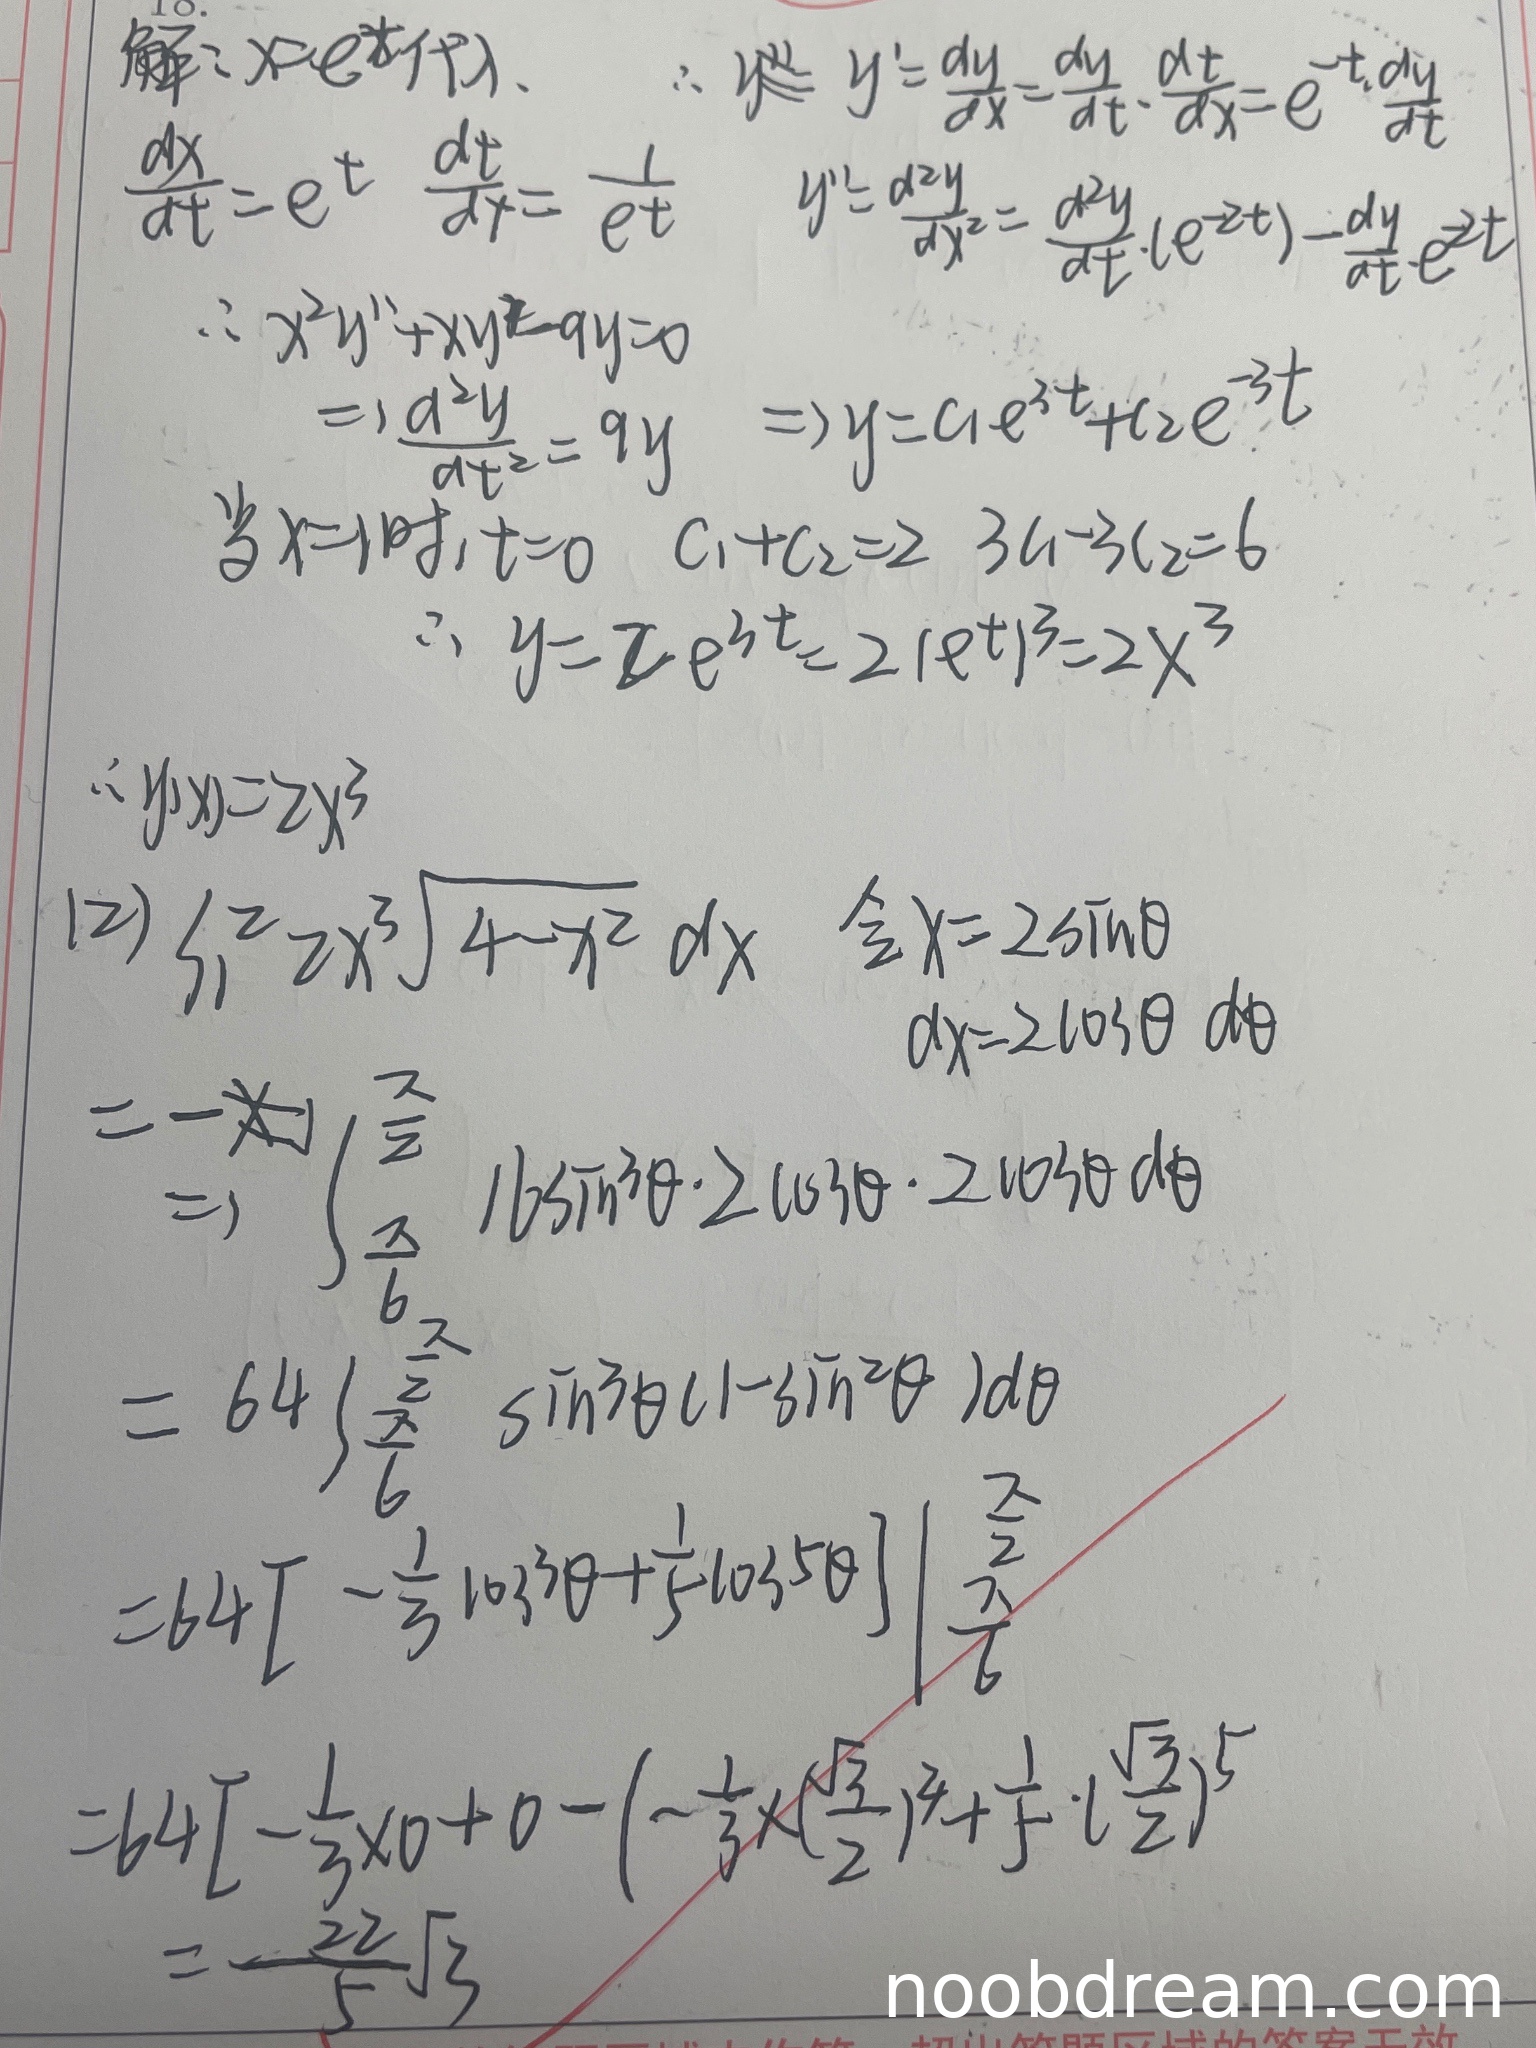 18.
解: x=e^t代入.
∴ y' = dy/dx = dy/dt · dt/dx = e^{-t} · dy/dt
dx/dt = e^t dt/dx = 1/e^t
y'' = d²y/dx² = d²y/dt · (e^{-2t}) - dy/dt · e^{-2t}
∴ x²y''+xy'-9y=0
=> d²y/dt² = 9y => y=C₁e^{3t}+C₂e^{-3t}
当x=1时, t=0 C₁+C₂=2 3C₁-3C₂=6
∴ y=2e^{3t}=2(e^t)³=2x³
∴ y(x)=2x³
(2) ∫₁² 2x³√(4-x²) dx 令x=2sinθ
dx=2cosθ dθ
=
=> ∫_{π/6}^{π/2} 16sin³θ·2cosθ·2cosθdθ
= 64∫_{π/6}^{π/2} sin³θ(1-sin²θ)dθ
=64[-1/3 cos³θ+1/5 cos⁵θ]|_{π/6}^{π/2}
=64[-1/3×0+0-(-1/3×(√3/2)³+1/5·(√3/2)⁵
= 22/5 √3
noobdream.com
超出答题区域的答案无效